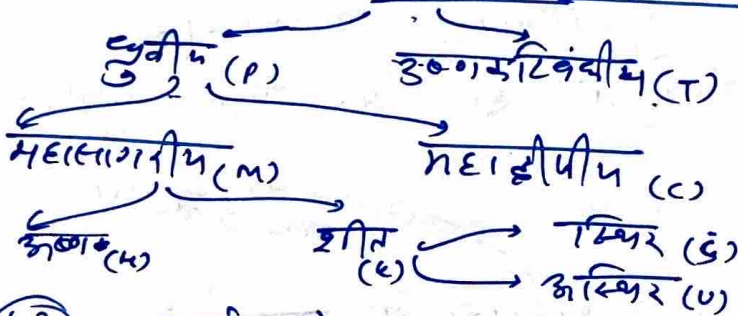 ध्रुवीय (P) उष्णकटिबंधीय (T)
महासागरीय (M) महाद्वीपीय (C)
उष्ण (K) शीत (K) स्थिर (S)
अस्थिर (U)